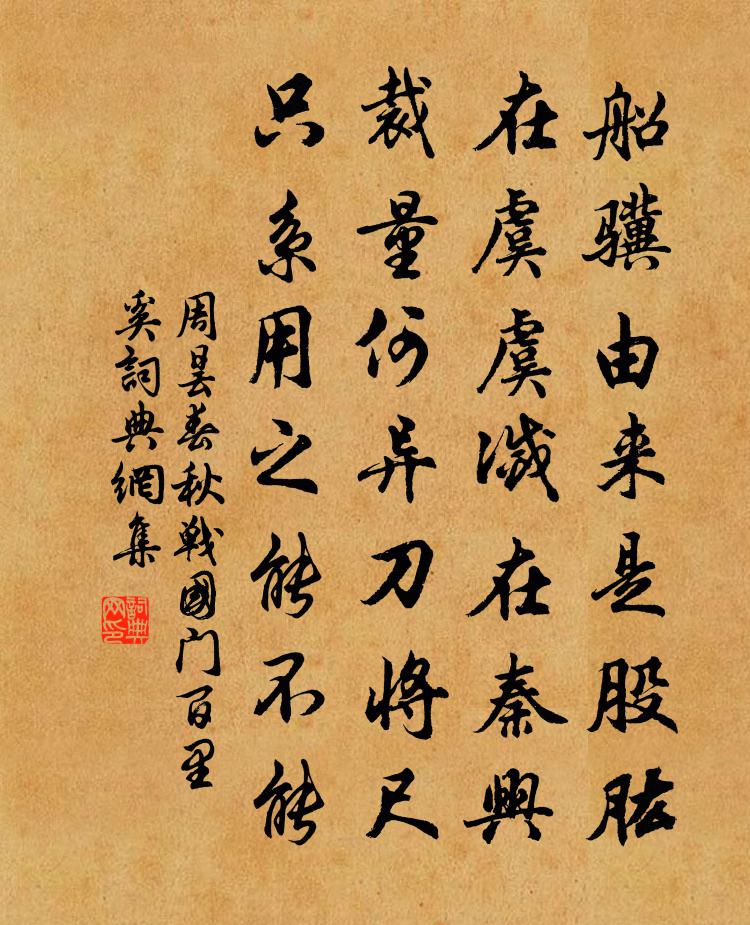 船骥由来是股肱
在虞虞滅在秦興
裁量何异刀将尺
只系用之能不能
周昙春秋戦國门百里
奚詞典網集
詞典网印